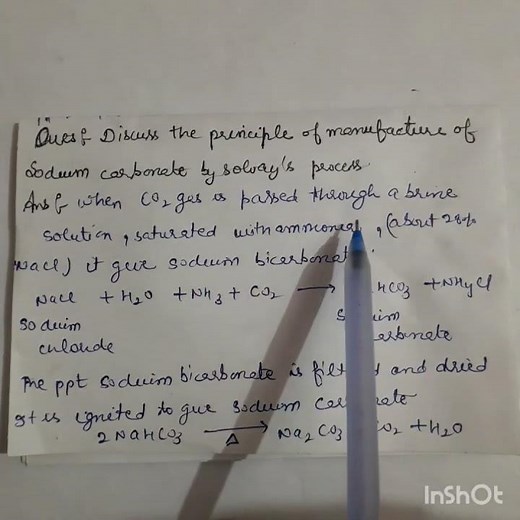 Ques Discuss the principle of manufacture of
Sodium carbonate by solvay's process.
Ans when CO2 gas is passed through a brine
solution, saturated with ammonea, (about 28%
NaCl) it give sodium bicarbonat
NaCl + H2O + NH3 + CO2 → HCO3 + NH4Cl
Soduim
chloude
arbonate
The ppt Soduim bicarbonate is filt and dried
It is ignited to give Soduim carbonate
2NaHCO3 →Δ Na2CO3 CO2 + H2O
InShOt